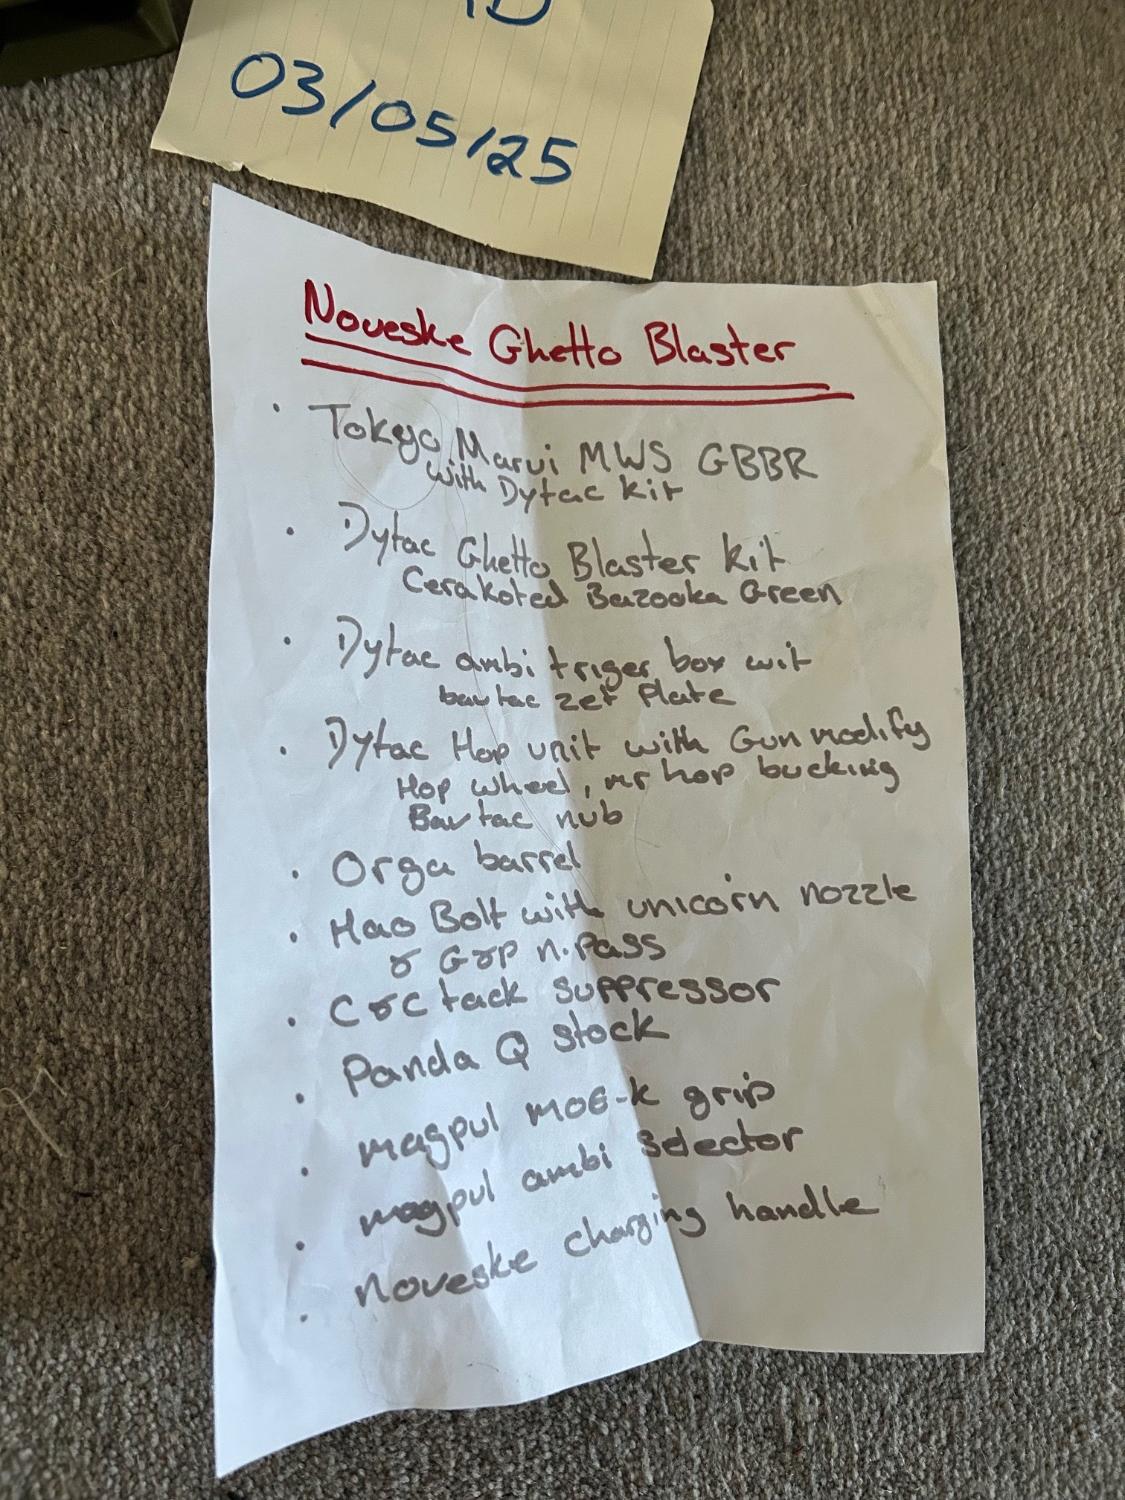 03/05/25
Noveske Ghetto Blaster
· Tokyo Marui MWS GBBR
with Dytac kit
· Dytac Ghetto Blaster kit
Cerakoted Bazooka Green
· Dytac ambi triger box wit
bawtac zet Plate
· Dytac Hop unit with Gun modify
Hop wheel, mr hop bucking
Bawtac nub
· Orga barrel
· Hao Bolt with unicorn nozzle
& G&P n.pass
· C&C tack suppressor
· Panda Q stock
· magpul moe-k grip
· magpul ambi selector
· noveske charging handle